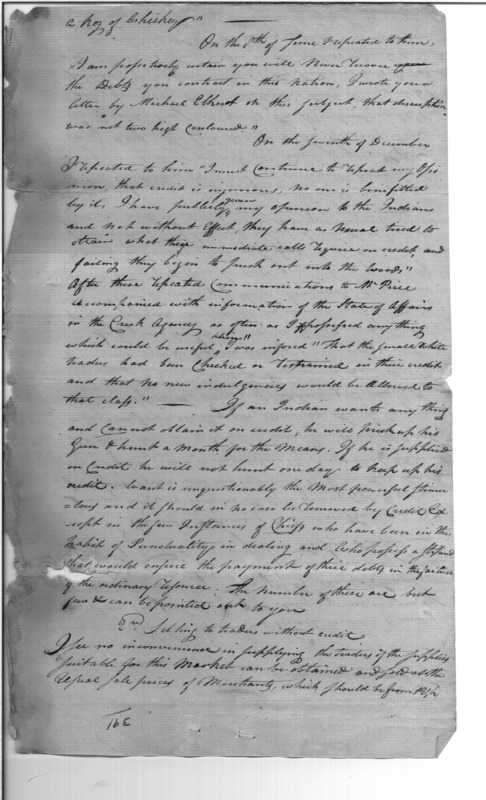 a keg of Whiskey"
On the 8th of June I repeated to him,
"I am positively certain you will never recover
the Debts you contract in this nation, I wrote you a
letter by Michael Elhert on this subject, that description
was not two high couloured"
On the seventh of December
I repeated to him "I must continue to repeat my Opi
nion, that credit is injurious, no one is benifitted
by it, I have publicly given my opinion to the Indians
and not without effect, they have as usual tried to
obtain what their immediate calls require on credit, and
failing they begin to push out into the woods"
After these repeated Communications to Mr Price
accompanied with information of the State of affairs
in the Creek Agency as often as I possessed any thing
which could be useful, I was informed "that the small white
traders had been Checked or restrained in their credit
and that no new indulgencies would be allowed to
that class." If an Indian wants any thing
and cannot obtain it on credit, he will pick up his
Gun & hunt a month for the means. If he is supplied
on Credit he will not hunt one day to keep up his
credit. Want is unquestionably the most powerful stimu
=lous and it should in no case be removed by Credit Ex
cept in the few Instances of Chiefs who have been in the
habit of Punctuality in dealing and who possess a
that would ensure the payment of their debts in the failure
of the ordinary resource. The number of these are but
few & can be pointed out to you
Selling to traders without credit
I see no inconvenience in supplying the traders if the supplies
suitable for this Market can be obtained and sold at the
usual sale prices of Merchants, which should be from
163